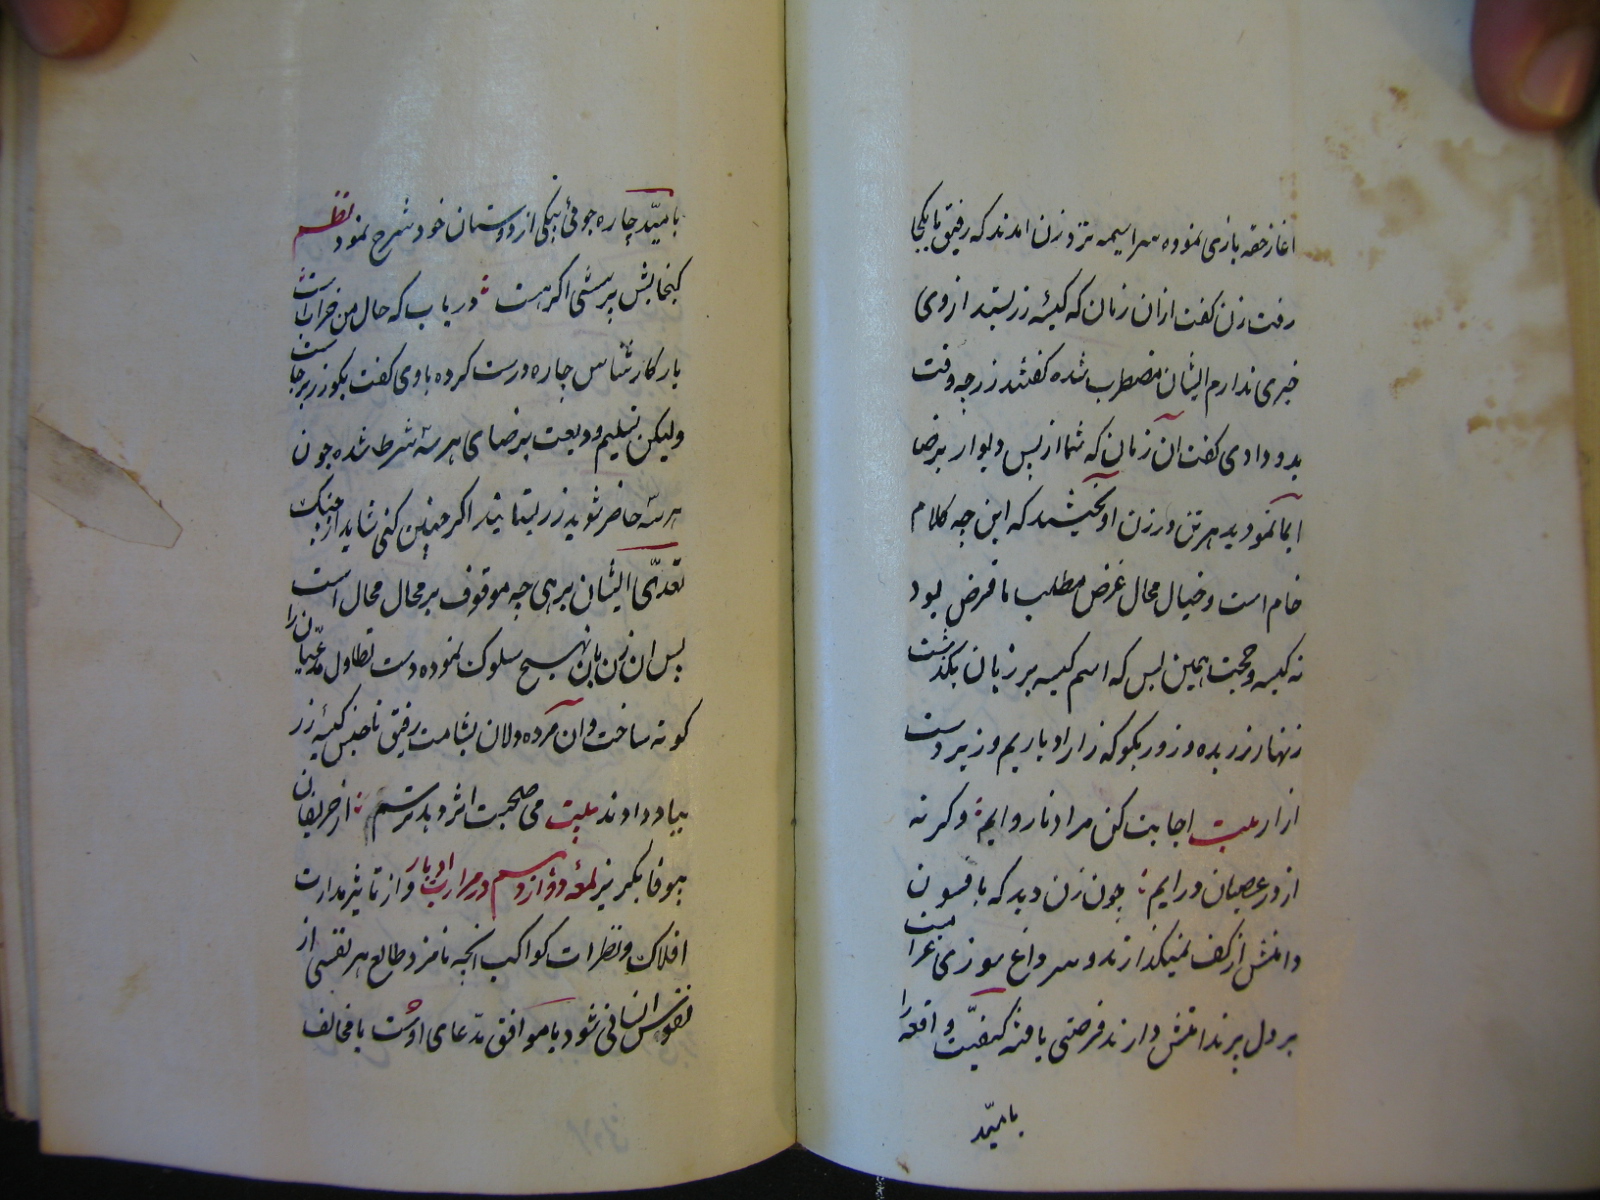 اغاز حقه بازی نموده سراسیمه نزد زن امدند که رفیق ما بکجا
رفت زن کفت ازان زمان که کیسهٔ زر بستد از وی
خبری ندارم ایشان مضطرب شده کفتند زر چه وقت
بدو دادی کفت آن زمان که شما از پس دیوار برضا
ایما نمودید هر تن در زن آویختند که این چه کلام
خام است و خیال محال غرض مطلب ما قرض بود
نه کیسه و حجت همین بس که اسم کیسه بر زبان بگذشت
زنهار زر بده و زور بکو که زار او یاریم و زیر دست
ازار بیت اجابت کن مراد ناروایم وکر نه
از در عصیان درایم چون زن دید که بافسون
دامنش از کف نمیکذارند و سر داغ سوزی غرامت
بر دل برنداتش دارند فرصتی یافته کیفیّت واقعه را
بامیّد
بامیّد چاره جوئی بیکی از دوستان خود شرح نمود نظم
کنجایش پرسشی اکر هست دریاب که حال من خرابست
یار کارشناس چاره درست کرده باوی کفت بکو زر برجاست
ولیکن تسلیم ودیعت برضای هر سه شرط شده چون
هر سه حاضر شوید زر بستانید اکر چنین کنی شاید از چنک
تعدّی ایشان برهی چه موقوف بر محال محال است
پس ان زن باین نهج سلوک نموده دست تطاول مدّعیان را
کوته ساخت و آن مرده دلان بشامت رفیق ناجنس کیسهٔ زر
بباد دادند بیت می صحبت اثر دید ترسم از حریفان
بیوفا بکریز لمعهٔ دوازدهم در مرارت ادبار و از تاثیر مدارت
افلاک و نظرات کواکب انچه نامزد طالع هر نفسی از
نفوس انسانی شود یا موافق مدّعای اوست یا مخالف